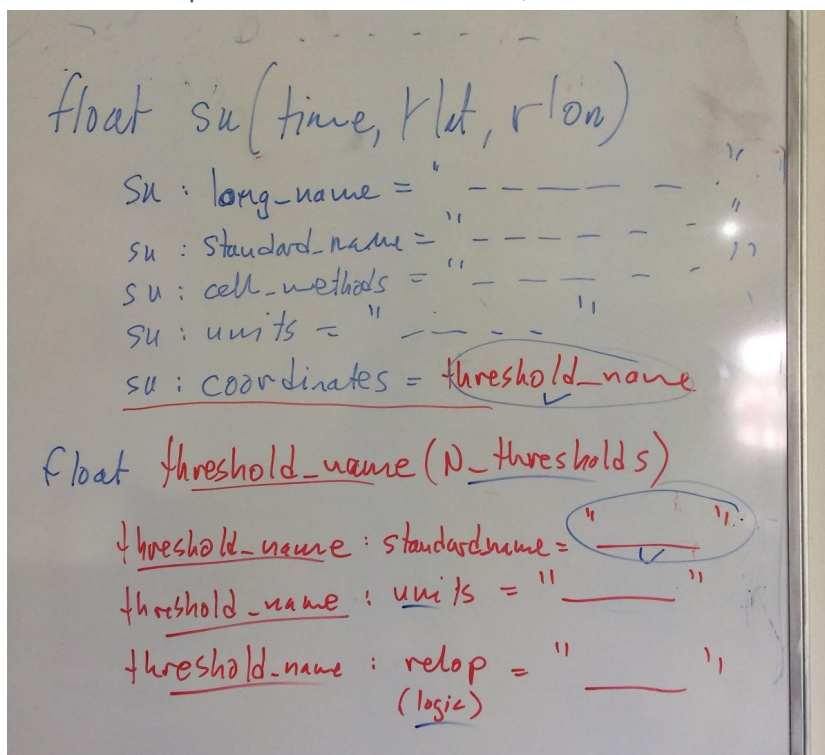 float su(time, rlat, rlon)
su : long_name = " - - - - - - "
su : standard_name = " - - - - - - "
su : cell_methods = " - - - - - - "
su : units = " - - - - - "
su : coordinates = threshold_name
float threshold_name (N_thresholds)
threshold_name : standardname = " ____ "
threshold_name : units = " ____ "
threshold_name : relop = " ____ "
(logic)